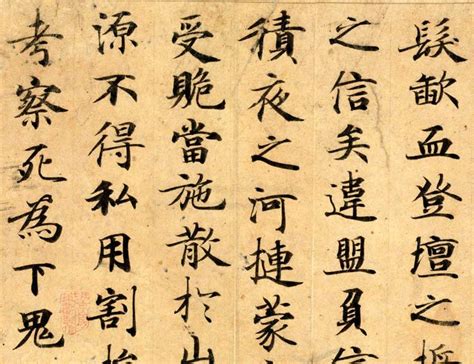 髮歃血登壇之
之信矣違盟負
積夜之河摙蒙
受當施散於山
源不得私用割
考察死為下鬼